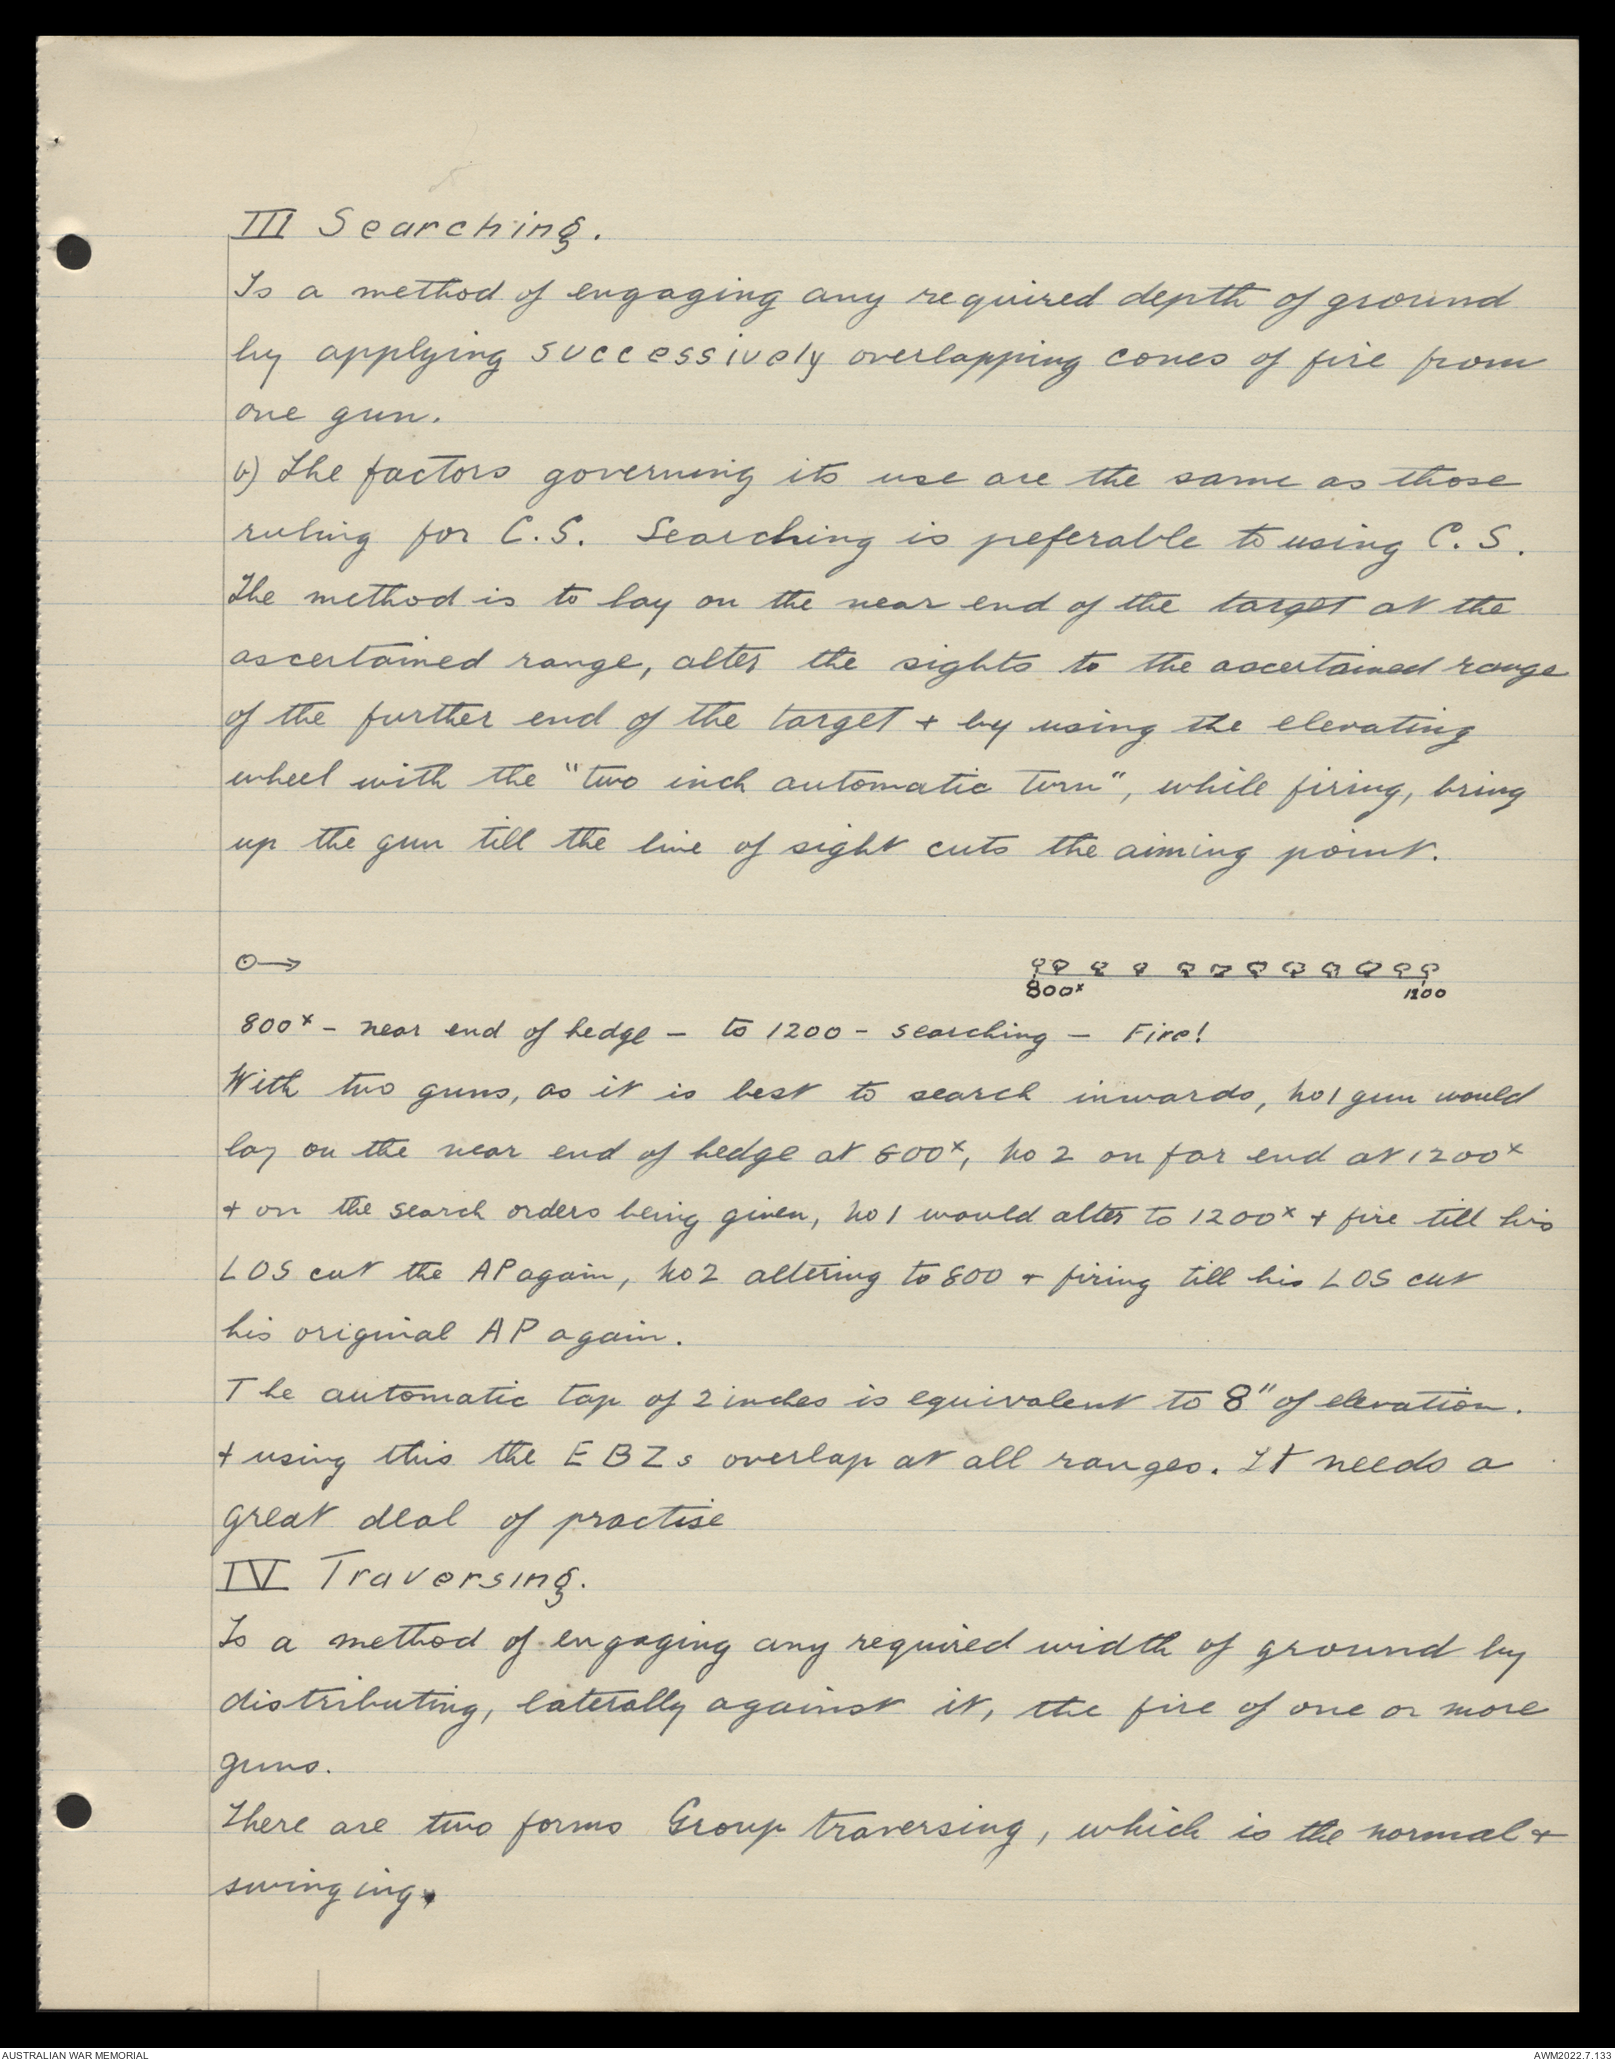 III Searching.
Is a method of engaging any required depth of ground
by applying successively overlapping cones of fire from
one gun.
b) The factors governing its use are the same as those
ruling for C.S. Searching is peferable to using C.S.
The method is to lay on the near end of the target at the
ascertained range, alter the sights to the ascertained range
of the further end of the target + by using the elevating
wheel with the "two inch automatic turn", while firing, bring
up the gun till the line of sight cuts the aiming point.
800x 1200
800x - near end of hedge - to 1200 - searching - Fire!
With two guns, as it is best to search inwards, No 1 gun would
lay on the near end of hedge at 800x, No 2 on far end at 1200x
+ on the search orders being given, No 1 would alter to 1200x + fire till his
LOS cut the AP again, No 2 altering to 800 + firing till his LOS cut
his original AP again.
The automatic tap of 2 inches is equivalent to 8" of elevation.
+ using this the EBZs overlap at all ranges. It needs a
great deal of practise
IV Traversing.
Is a method of engaging any required width of ground by
distributing, laterally against it, the fire of one or more
guns.
There are two forms Group traversing, which is the normal +
swinging.
AUSTRALIAN WAR MEMORIAL AWM2022.7.133